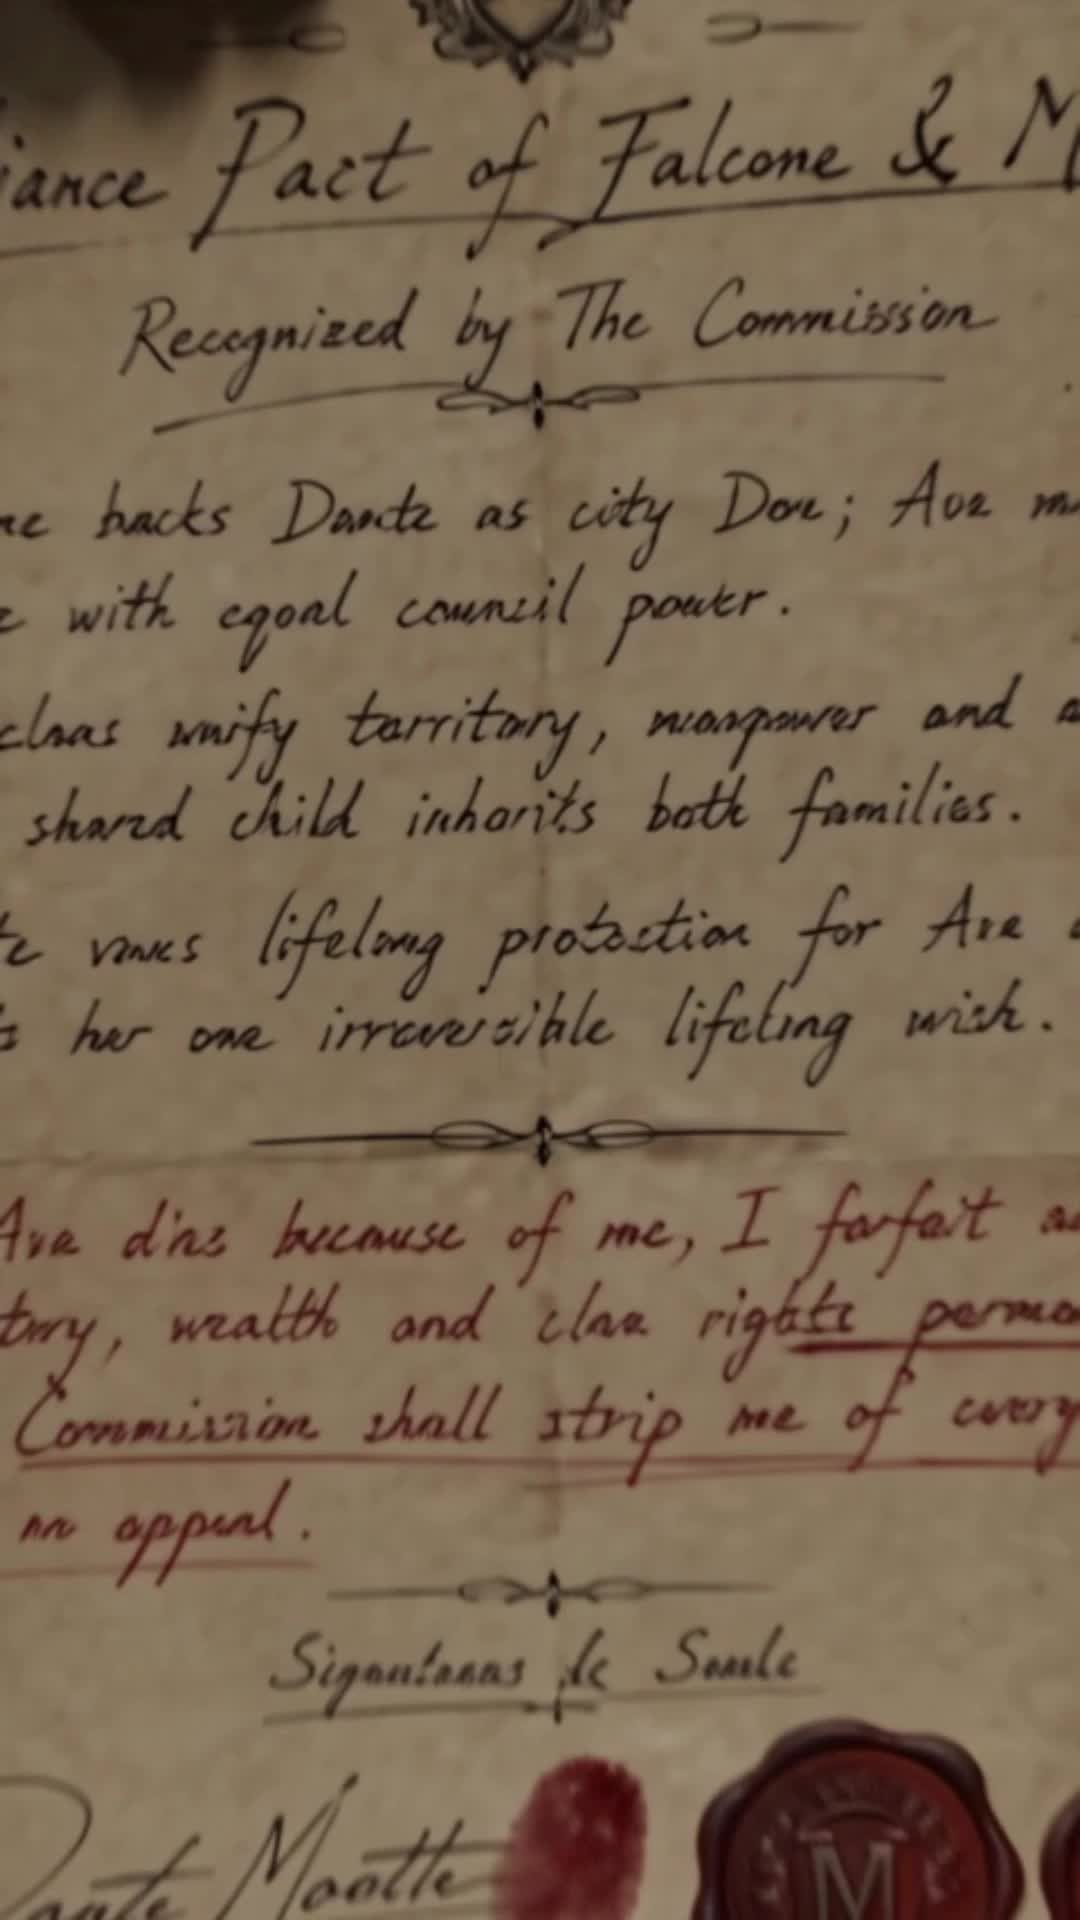 iance Pact of Falcone & M
Recegnized by The Commission
ne backs Dante as city Don; Ava m
with eqoal council power.
unify territory, manpower and a
shared child inhorits both families.
te lifelong protection for Ava
her one irreversible lifeling wish.
Ava because of me, I forfeit
wealth and clan rights perma
Commission shall strip me of every
no appeal.
Dante
M